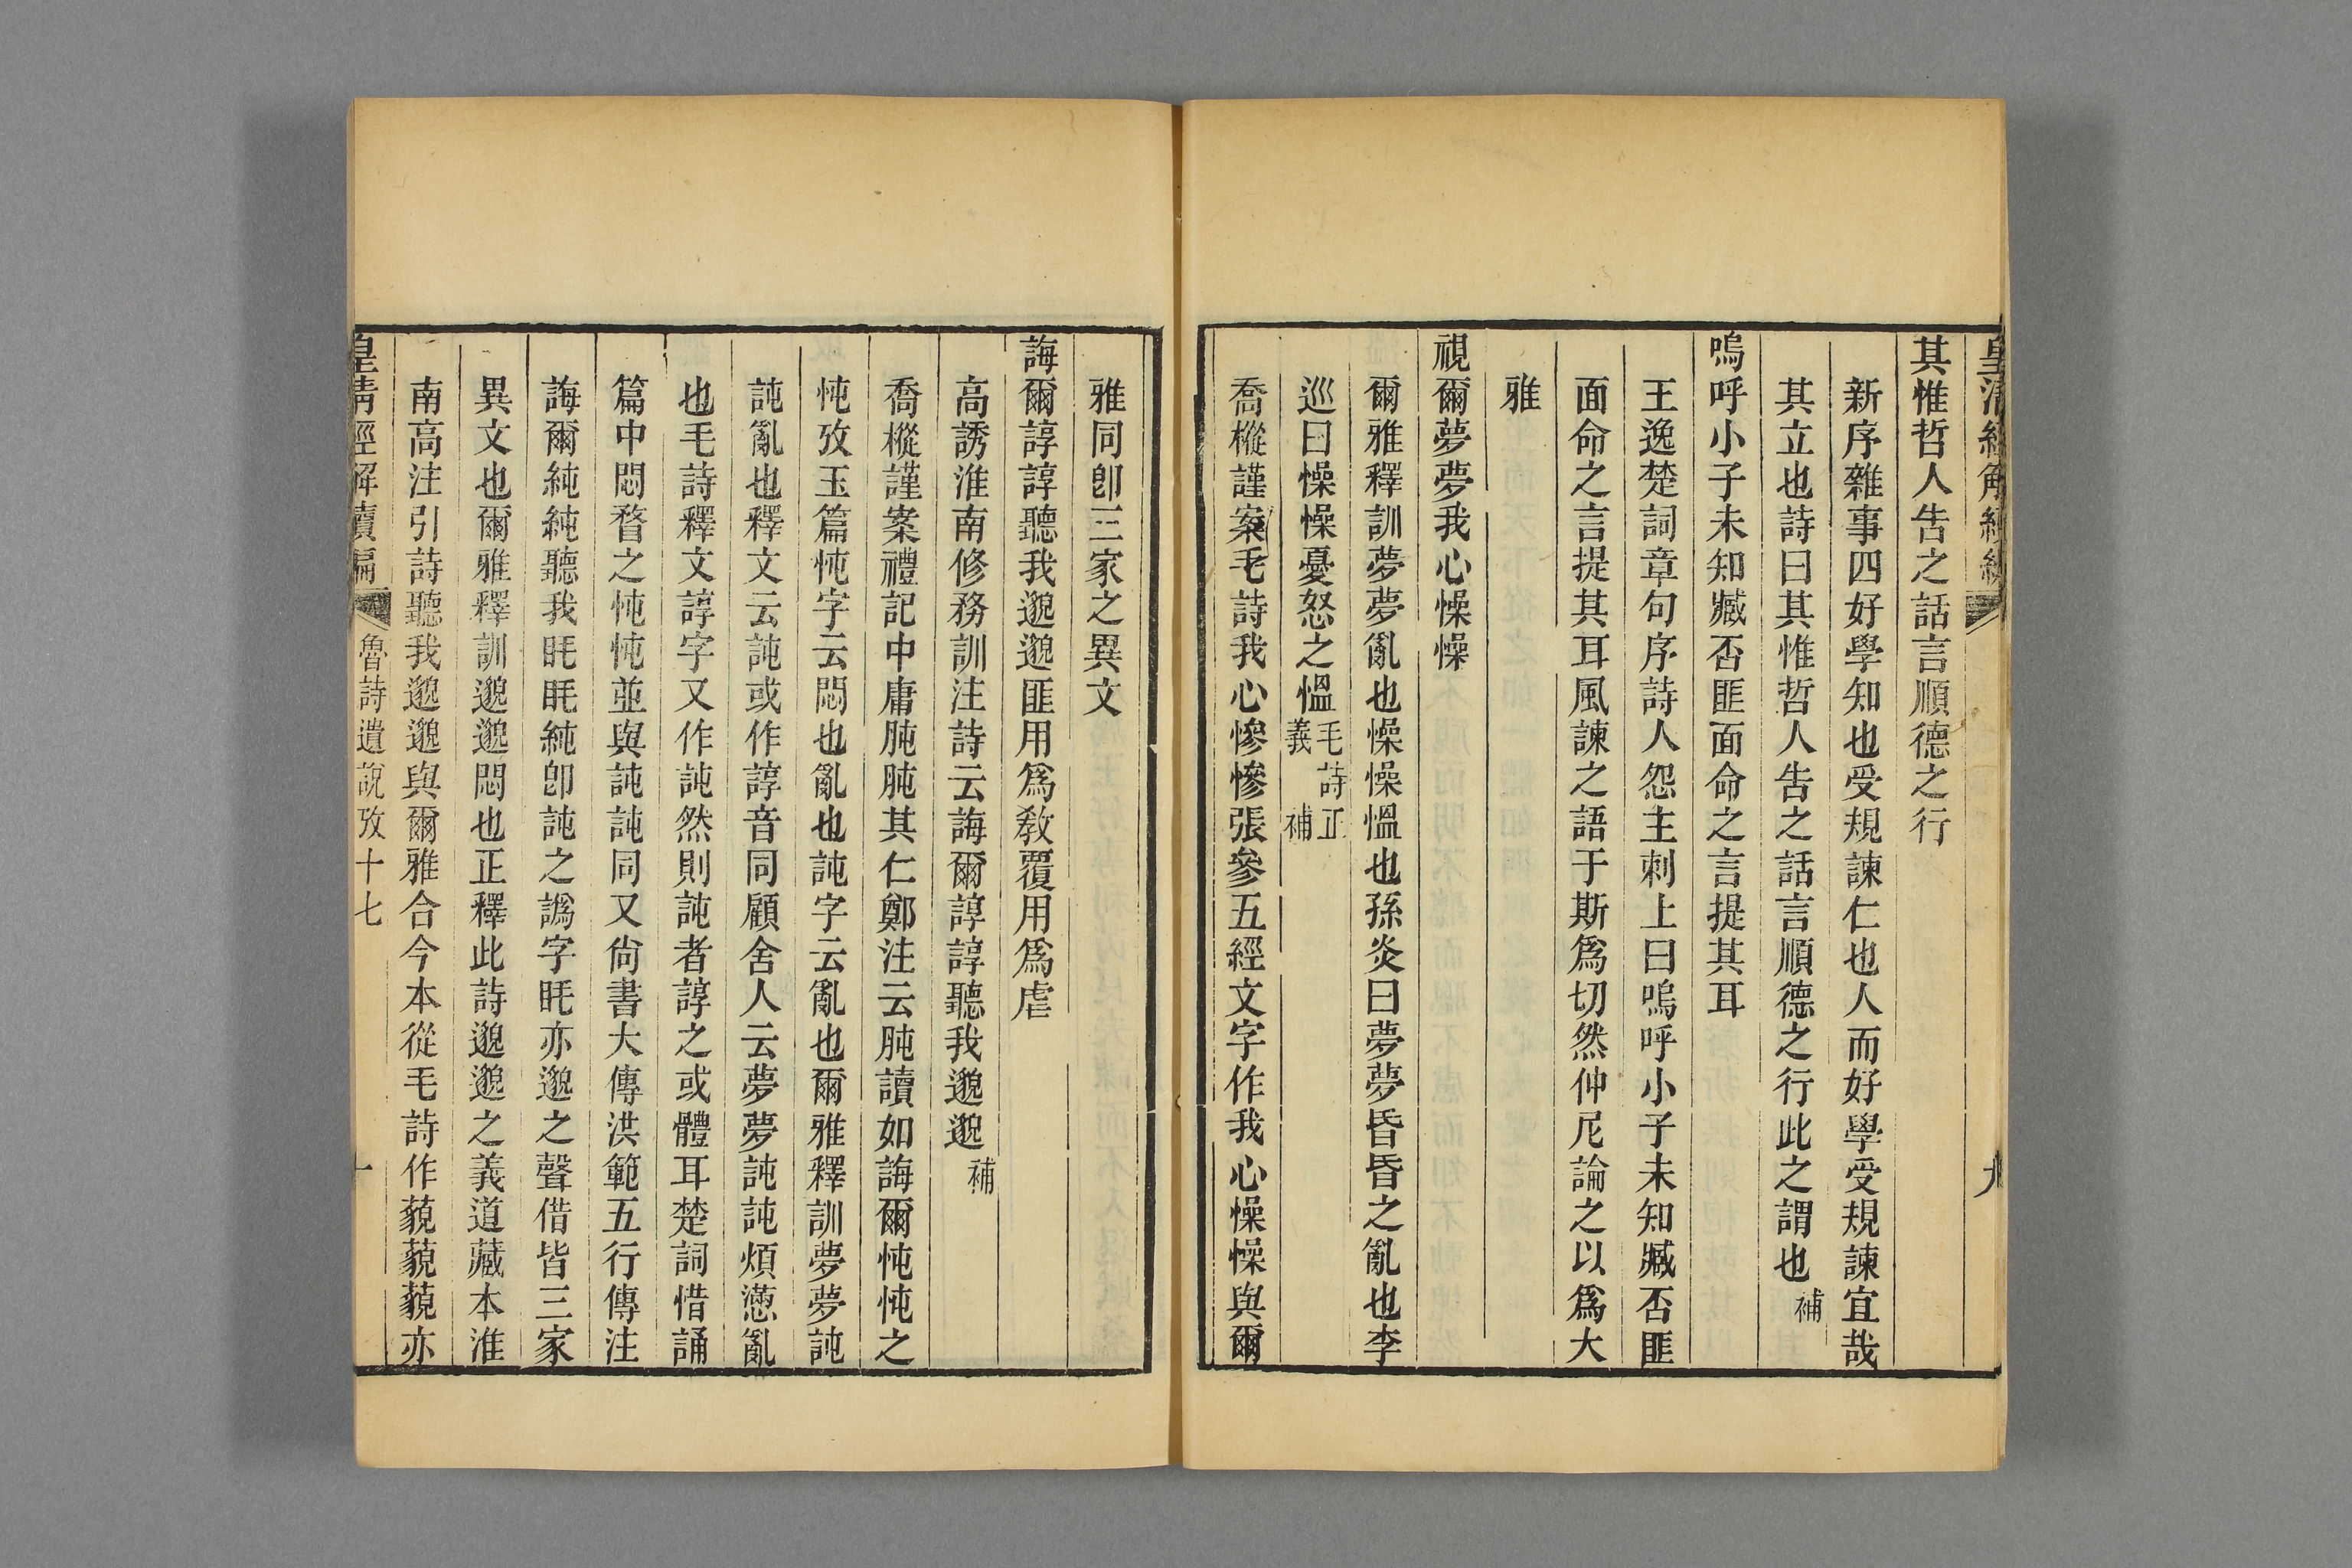 其惟哲人告之話言順德之行
新序雜事四好學知也受規諫仁也人而好學受規諫宜哉
其立也詩曰其惟哲人告之話言順德之行此之謂也補
嗚呼小子未知臧否匪面命之言提其耳
王逸楚詞章句序詩人怨主刺上曰嗚呼小子未知臧否匪
面命之言提其耳風諫之語于斯爲切然仲尼論之以爲大
雅
視爾夢夢我心懆懆
爾雅釋訓夢夢亂也懆懆慍也孫炎曰夢夢昏昏之亂也李
巡曰懆懆憂怒之慍毛詩正義補
喬樅謹案毛詩我心慘慘張參五經文字作我心懆懆與爾
雅同卽三家之異文
誨爾諄諄聽我邈邈匪用爲敎覆用爲虐
高誘淮南修務訓注詩云誨爾諄諄聽我邈邈補
喬樅謹案禮記中庸肫肫其仁鄭注云肫讀如誨爾忳忳之
忳攷玉篇忳字云悶也亂也訰字云亂也爾雅釋訓夢夢訰
訰亂也釋文云訰或作諄音同顧舍人云夢夢訰訰煩懣亂
也毛詩釋文諄字又作訰然則訰者諄之或體耳楚詞惜誦
篇中悶瞀之忳忳並與訰訰同又尙書大傳洪範五行傳注
誨爾純純聽我眊眊純卽訰之譌字眊亦邈之聲借皆三家
異文也爾雅釋訓邈邈悶也正釋此詩邈邈之義道藏本淮
南高注引詩聽我邈邈與爾雅合今本從毛詩作藐藐藐亦
皇清經解續編 魯詩遺說攷十七